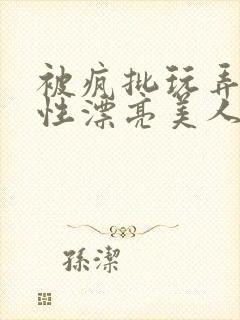 被疯批玩弄
性漂亮美人
孫潔